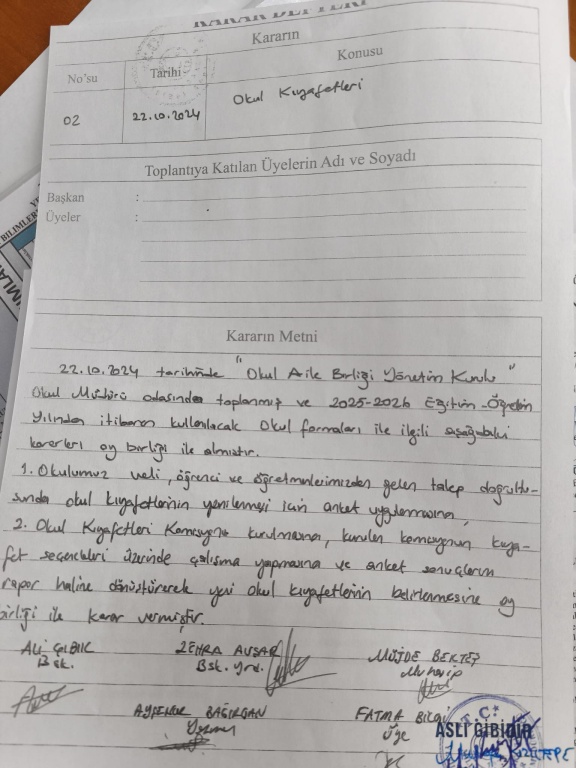 KARAR DEFTERİ
Kararın
No'su Tarihi Konusu
02 22.10.2024 Okul Kıyafetleri
Toplantıya Katılan Üyelerin Adı ve Soyadı
Başkan :
Üyeler :
Kararın Metni
22.10.2024 tarihinde "Okul Aile Birliği Yönetim Kurulu"
Okul Müdürü odasında toplanmış ve 2025-2026 Eğitim-Öğretim
Yılından itibaren kullanılacak Okul formaları ile ilgili aşağıdaki
kararları oy birliği ile almıştır.
1. Okulumuz veli, öğrenci ve öğretmenlerimizden gelen talep doğrultu-
sunda okul kıyafetlerinin yenilenmesi için anket uygulanmasına,
2. Okul Kıyafetleri Komisyonu kurulmasına, kurulan komisyonun kıya-
fet seçenekleri üzerinde çalışma yapmasına ve anket sonuçlarını
rapor haline dönüştürerek yeni okul kıyafetlerinin belirlenmesine oy
birliği ile karar vermiştir.
ALİ ÇIBLIK ZEHRA AVŞAR MÜJDE BEKTEŞ
Bşk. Bşk. yrd. Muhasip
AYŞENUR FATMA BİLGİ
Üye
T.C.
ASLI GİBİDİR
BİLİMLER